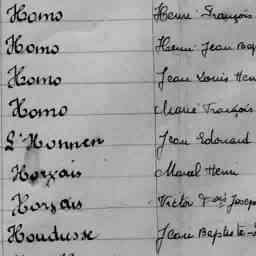 Homo Henri François
Homo Henri Jean Bap
Homo Jean Louis Hen
Homo Marie François
L'Honnen Jean Edouard
Horzais Marcel Henri
Horzais Victor Fois Josep
Houdusse Jean Baptiste